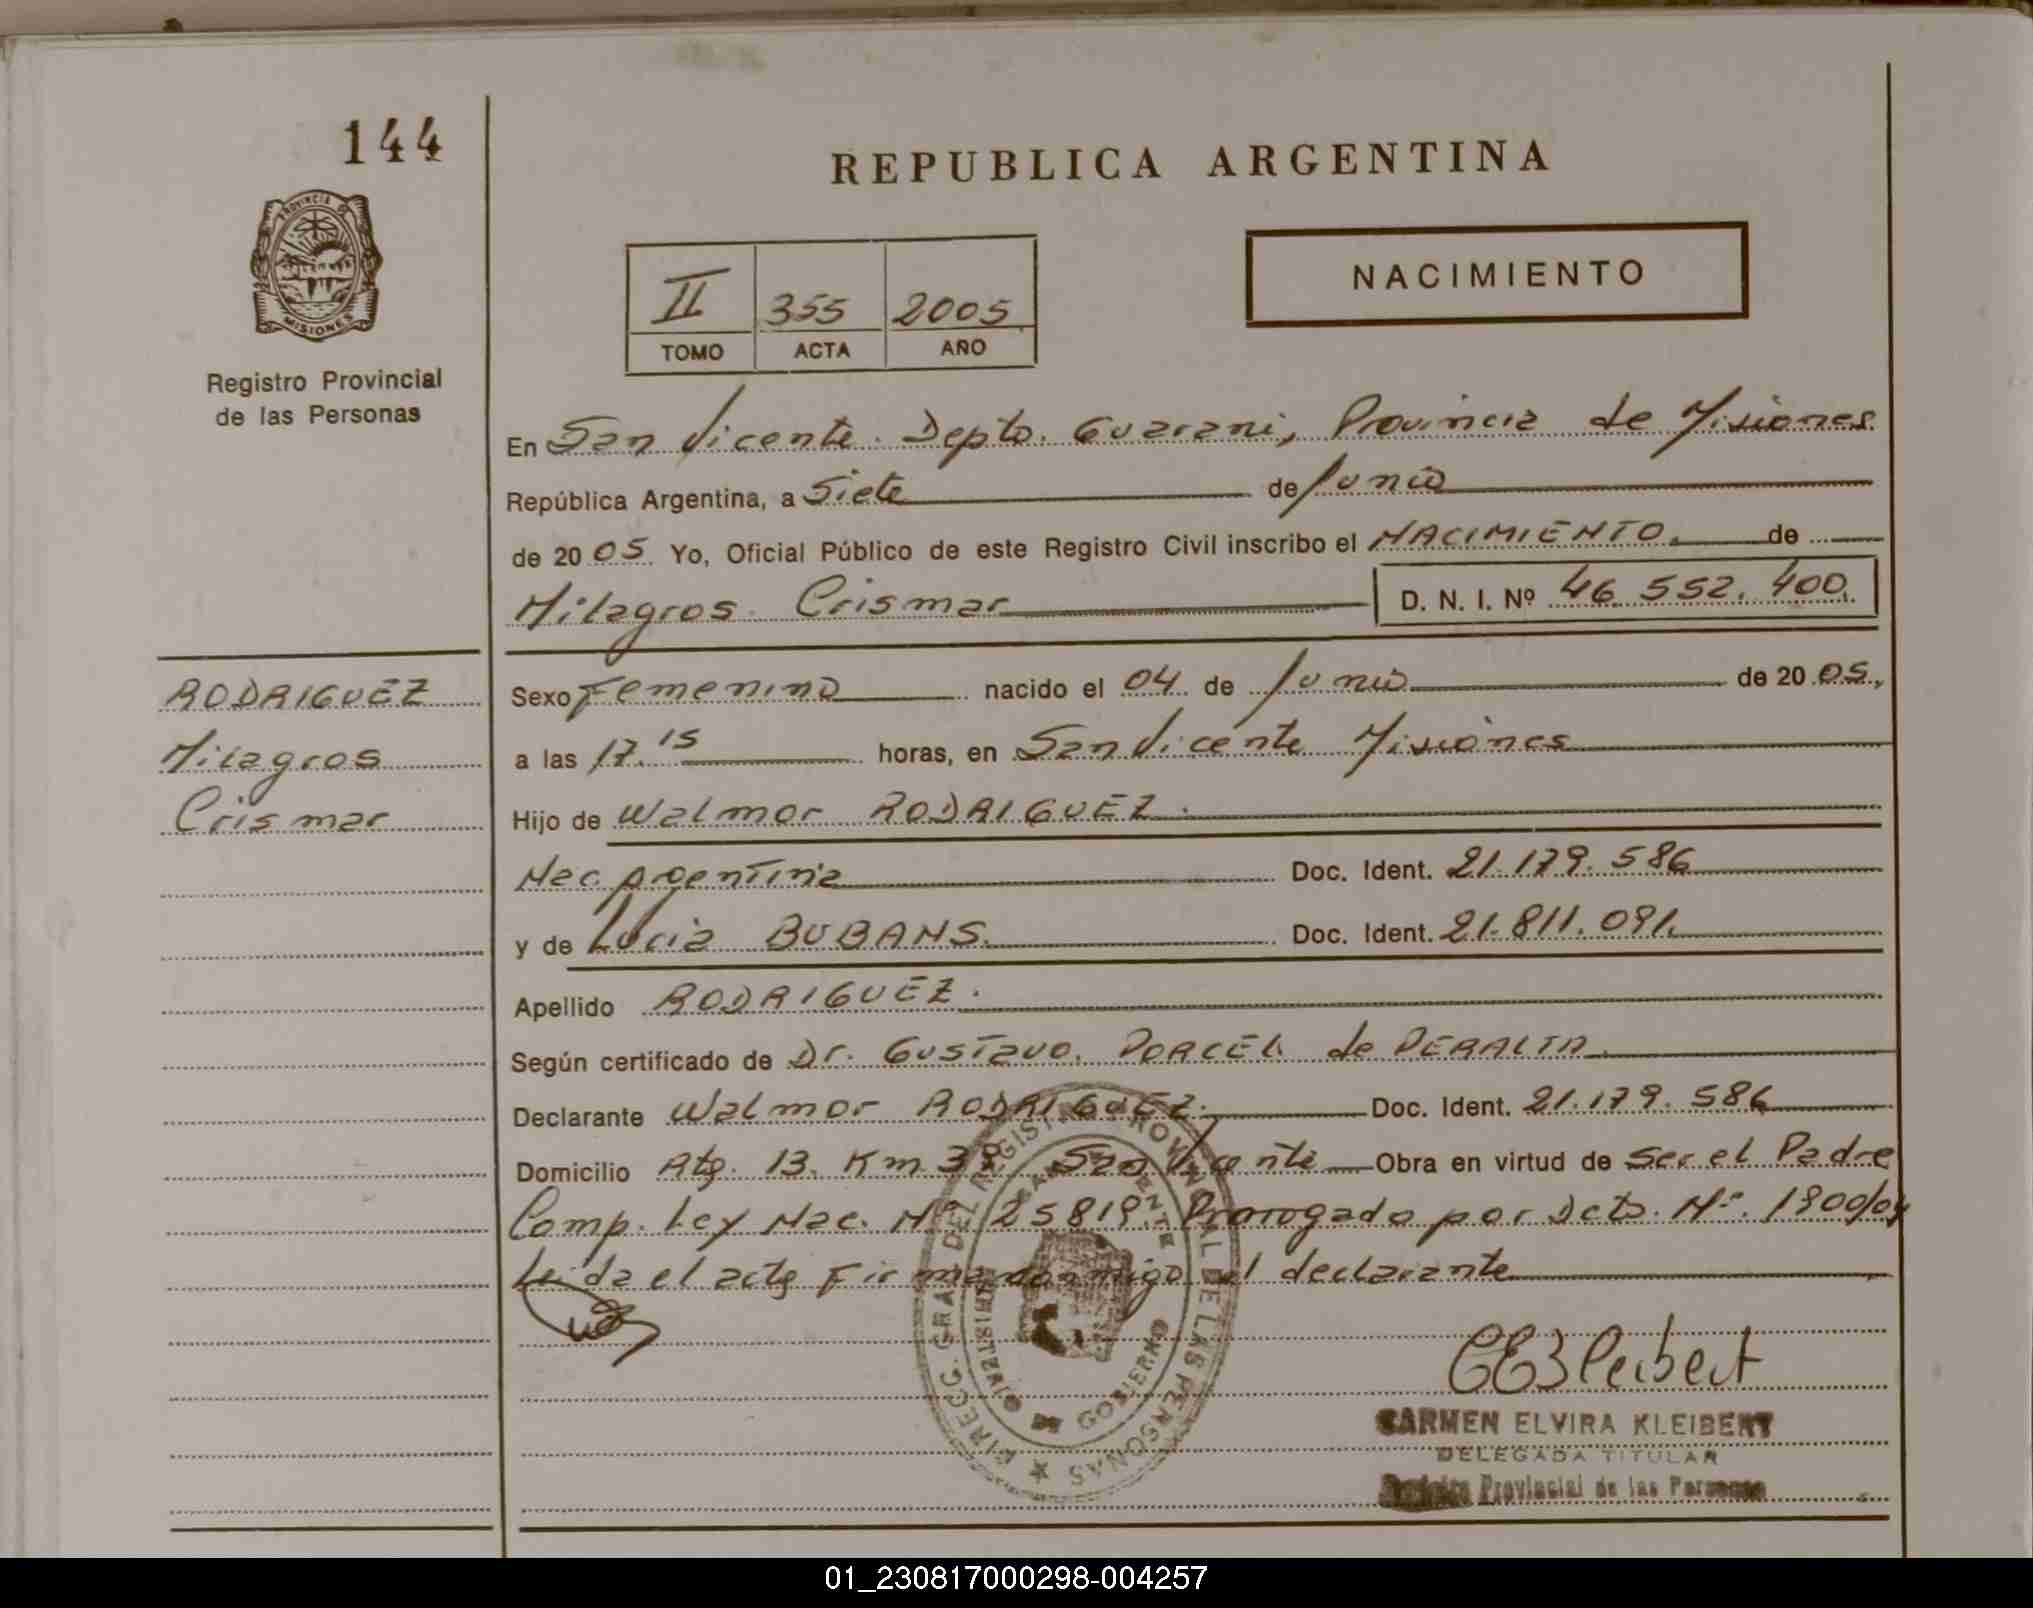 144
REPUBLICA ARGENTINA
PROVINCIA DE
MISIONES
Registro Provincial
de las Personas
II 355 2005
TOMO ACTA AÑO
NACIMIENTO
En San Vicente. Depto. Guarani, Provincia de Misiones
República Argentina, a Siete de Junio
de 2005 Yo, Oficial Público de este Registro Civil inscribo el NACIMIENTO. de
Milagros Crismar D. N. I. Nº 46.552.400.
RODRIGUEZ
Milagros
Crismar
Sexo Femenino nacido el 04 de Junio de 2005,
a las 17.15 horas, en San Vicente Misiones
Hijo de Walmor RODRIGUEZ.
Nac. Argentina Doc. Ident. 21.179.586
y de Lucia BUBANS. Doc. Ident. 21.811.091.
Apellido RODRIGUEZ.
Según certificado de Dr. Gustavo. PORCEL de PERALTA
Declarante Walmor RODRIGUEZ. Doc. Ident. 21.179.586
Domicilio Rta. 13. Km 38 San Vicente Obra en virtud de Ser el Padre
Comp. Ley Nac. Nº 25819. Prorogado por Dcto. Nº. 1900/04
Leida el acta Firma conmigo el declarante
DIRECC. GRAL DEL REGISTRO PROVINCIAL DE LAS PERSONAS
SAN VICENTE
MINISTERIO DE GOBIERNO
CEKleibert
CARMEN ELVIRA KLEIBERT
DELEGADA TITULAR
Registro Provincial de las Personas
01_230817000298-004257